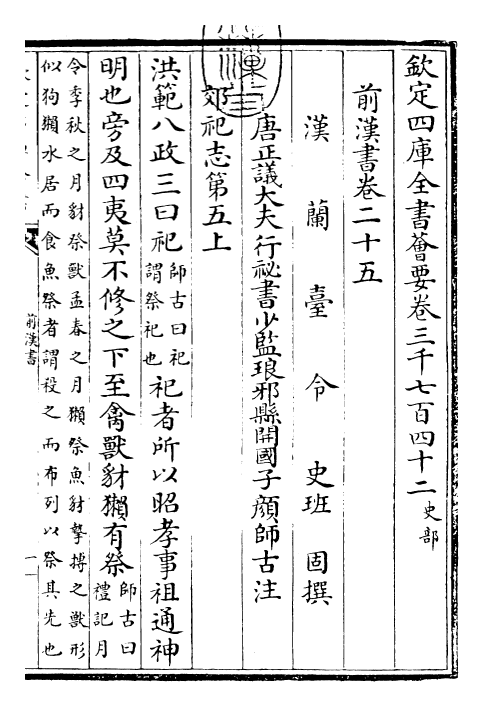 欽定四庫全書薈要卷三千七百四十二 史部
前漢書卷二十五
漢蘭臺令史班固撰
唐正議大夫行祕書少監琅邪縣開國子顔師古注
郊祀志第五上
洪範八政三曰祀 師古曰祀謂祭祀也 祀者所以昭孝事祖通神
明也旁及四夷莫不修之下至禽獸豺獺有祭 師古曰禮記月
令季秋之月豺祭獸孟春之月獺祭魚豺摯搏之獸形
似狗獺水居而食魚祭者謂殺之而布列以祭其先也
前漢書
一